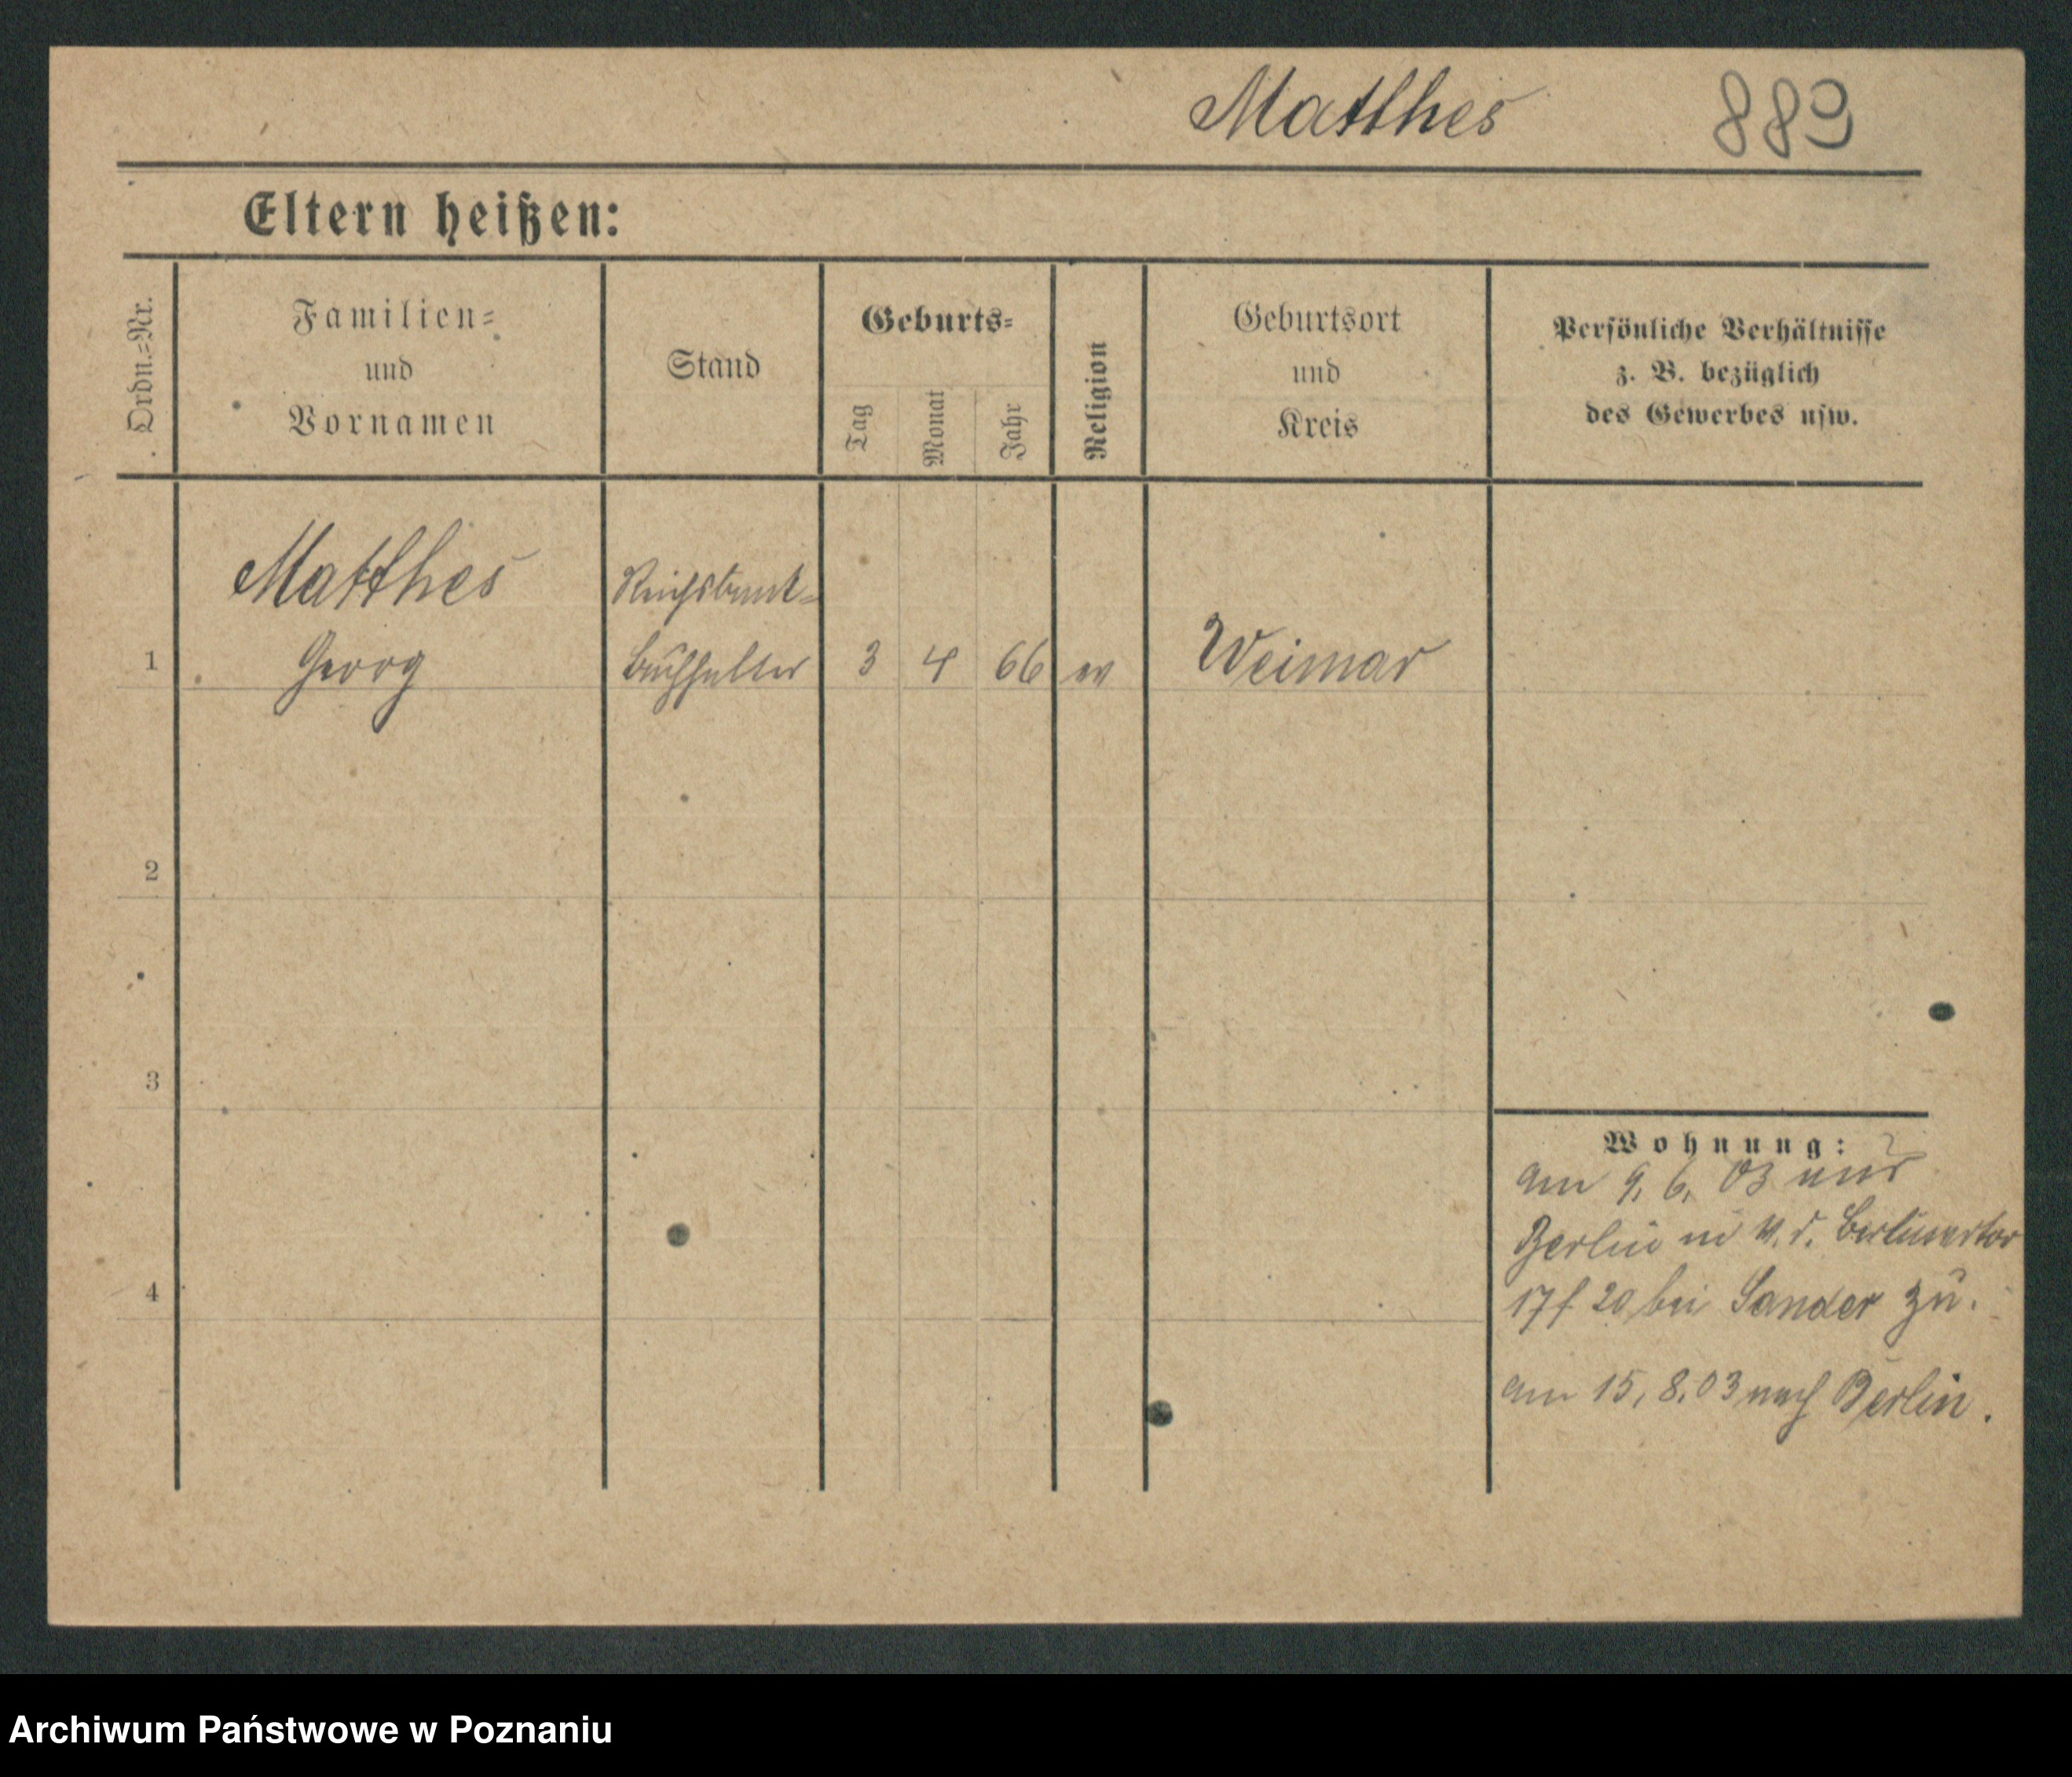 Matthes 889
Eltern heißen:
Ordn.=Nr.
Familien=
und
Vornamen
Stand
Geburts=
Tag
Monat
Jahr
Religion
Geburtsort
und
Kreis
Persönliche Verhältnisse
z. B. bezüglich
des Gewerbes usw.
Matthes
Georg
Reichsbank=
buchhalter
1
3 4 66 ev
Weimar
2
3
4
Wohnung:
am 9. 6. 03 aus
Berlin in V. d. Berlinertor
17 f 20 bei Sander zu.
am 15. 8. 03 nach Berlin.
Archiwum Państwowe w Poznaniu